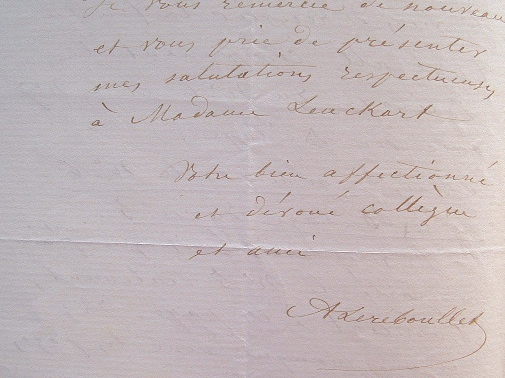 Je vous remercie de nouveau
et vous prie de présenter
mes salutations respectueuses
à Madame Leuckart
Votre bien affectionné
et dévoué collègue
et ami
A Lereboullet